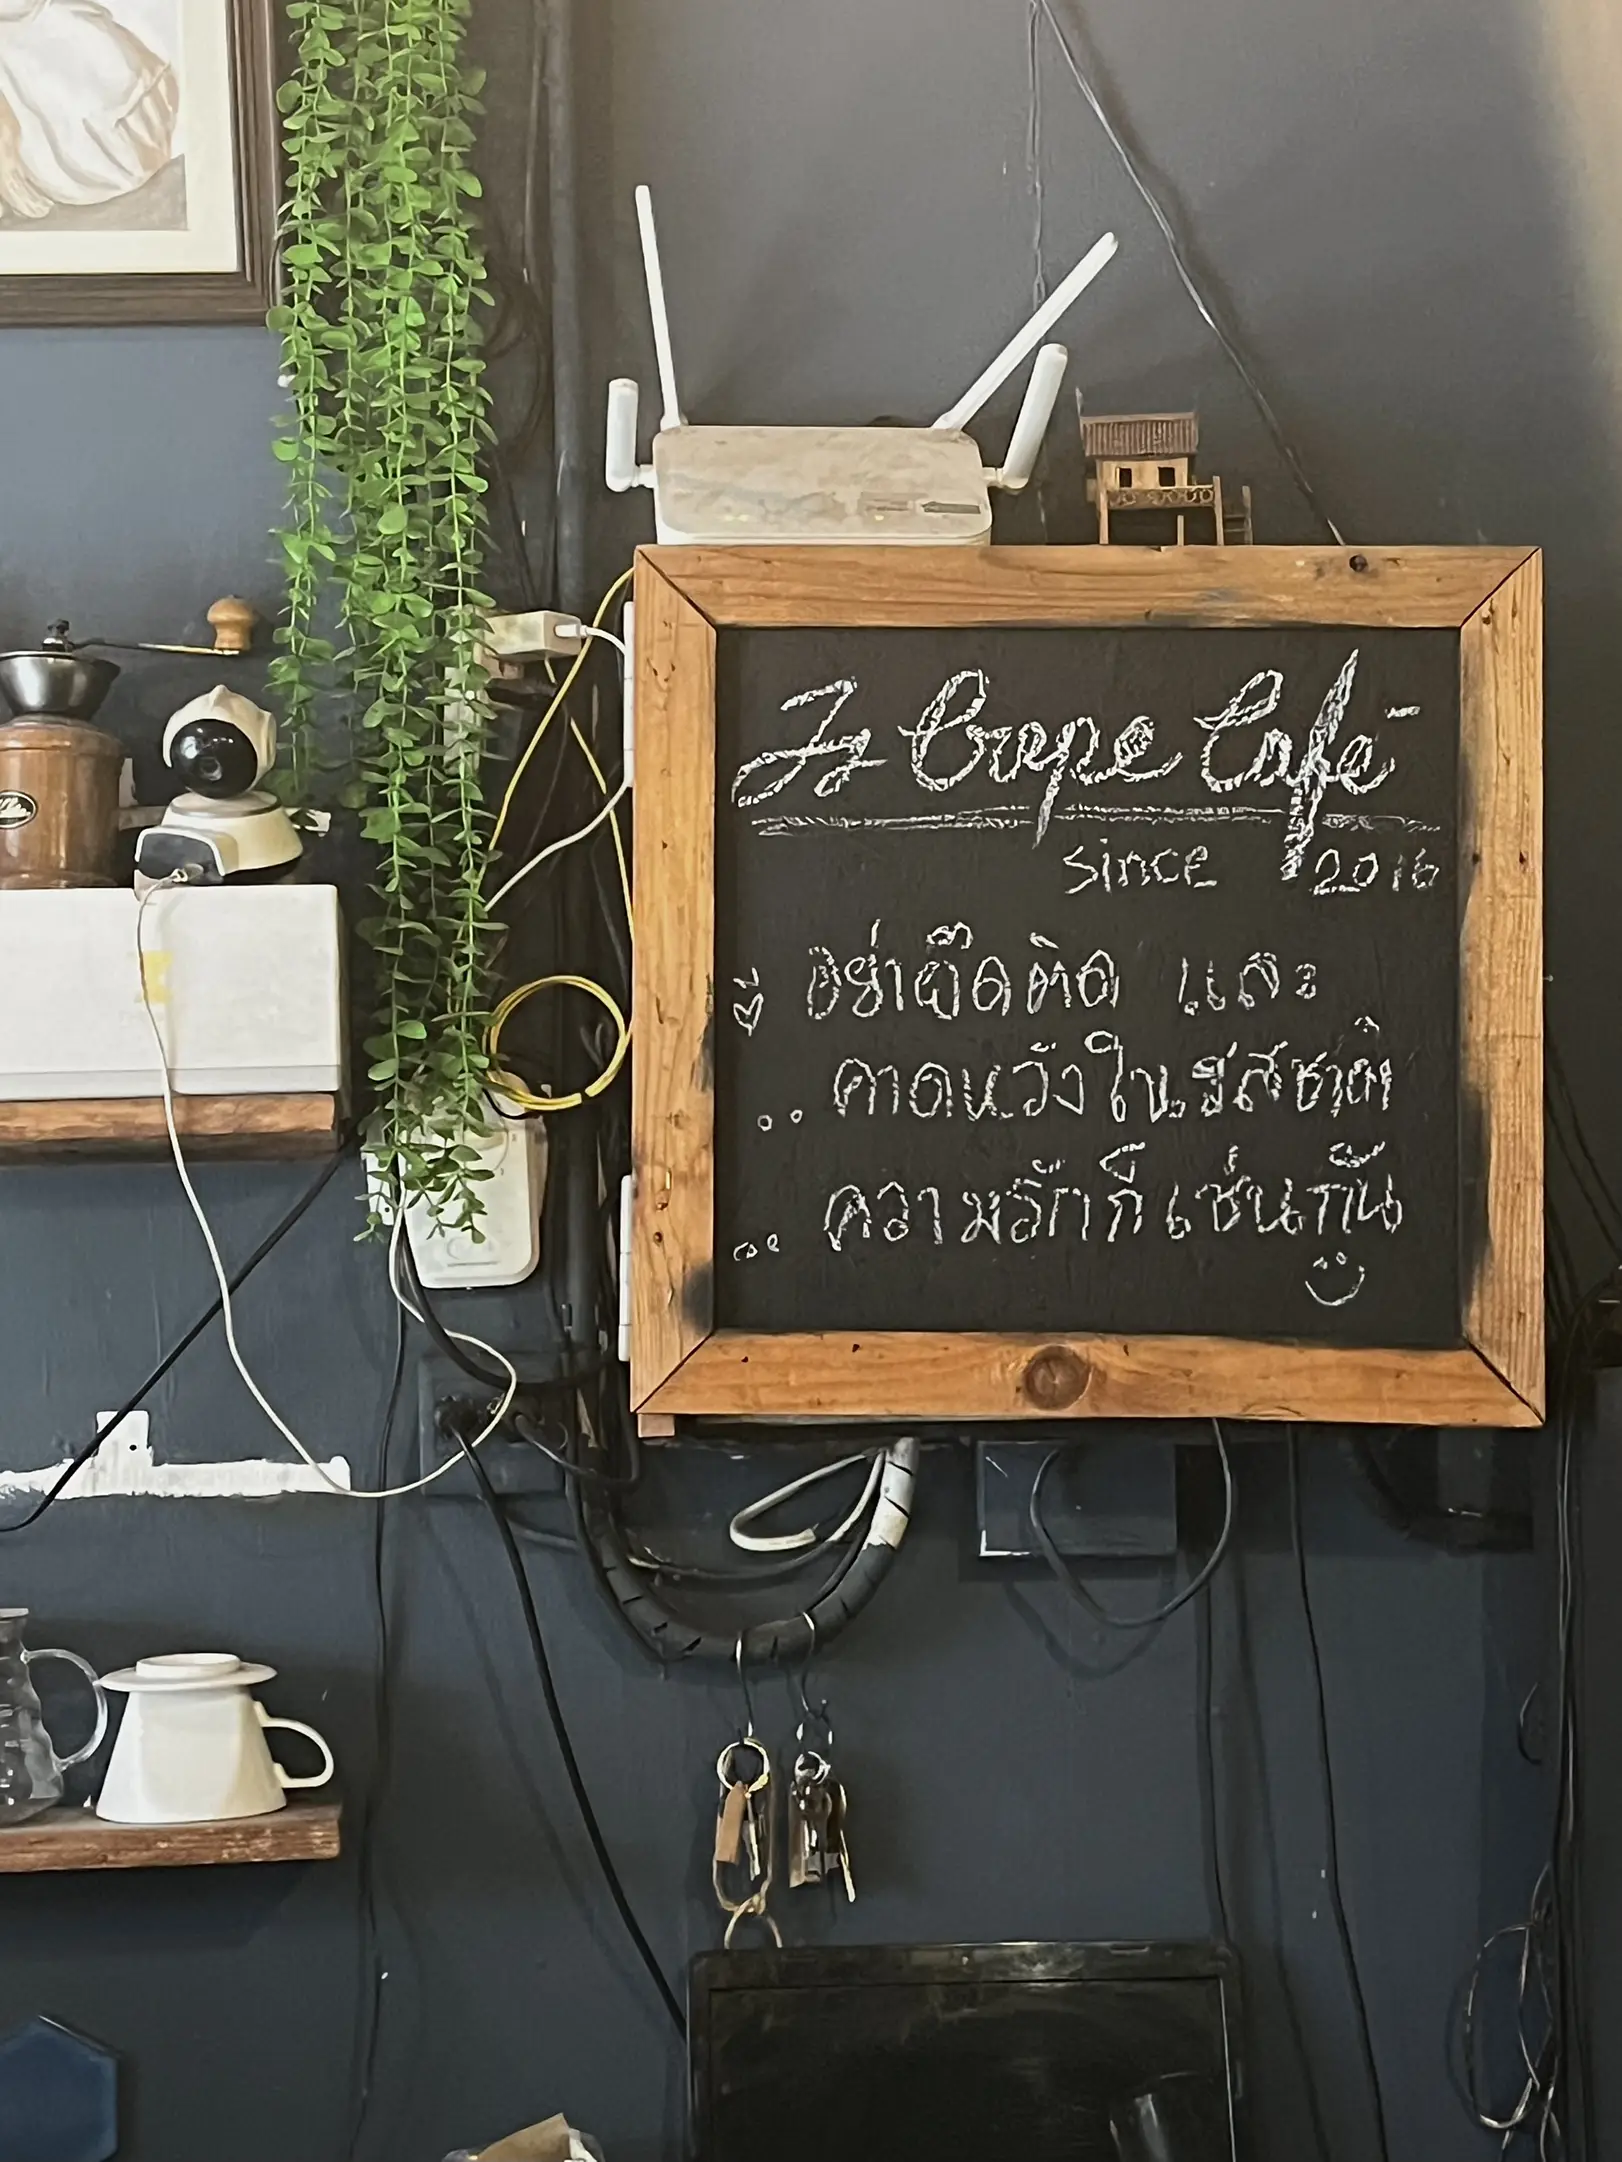 Jz Crepe Café
since 2016
อย่ายึดติด และ
คาดหวังในรสชาติ
ความรักก็เช่นกัน